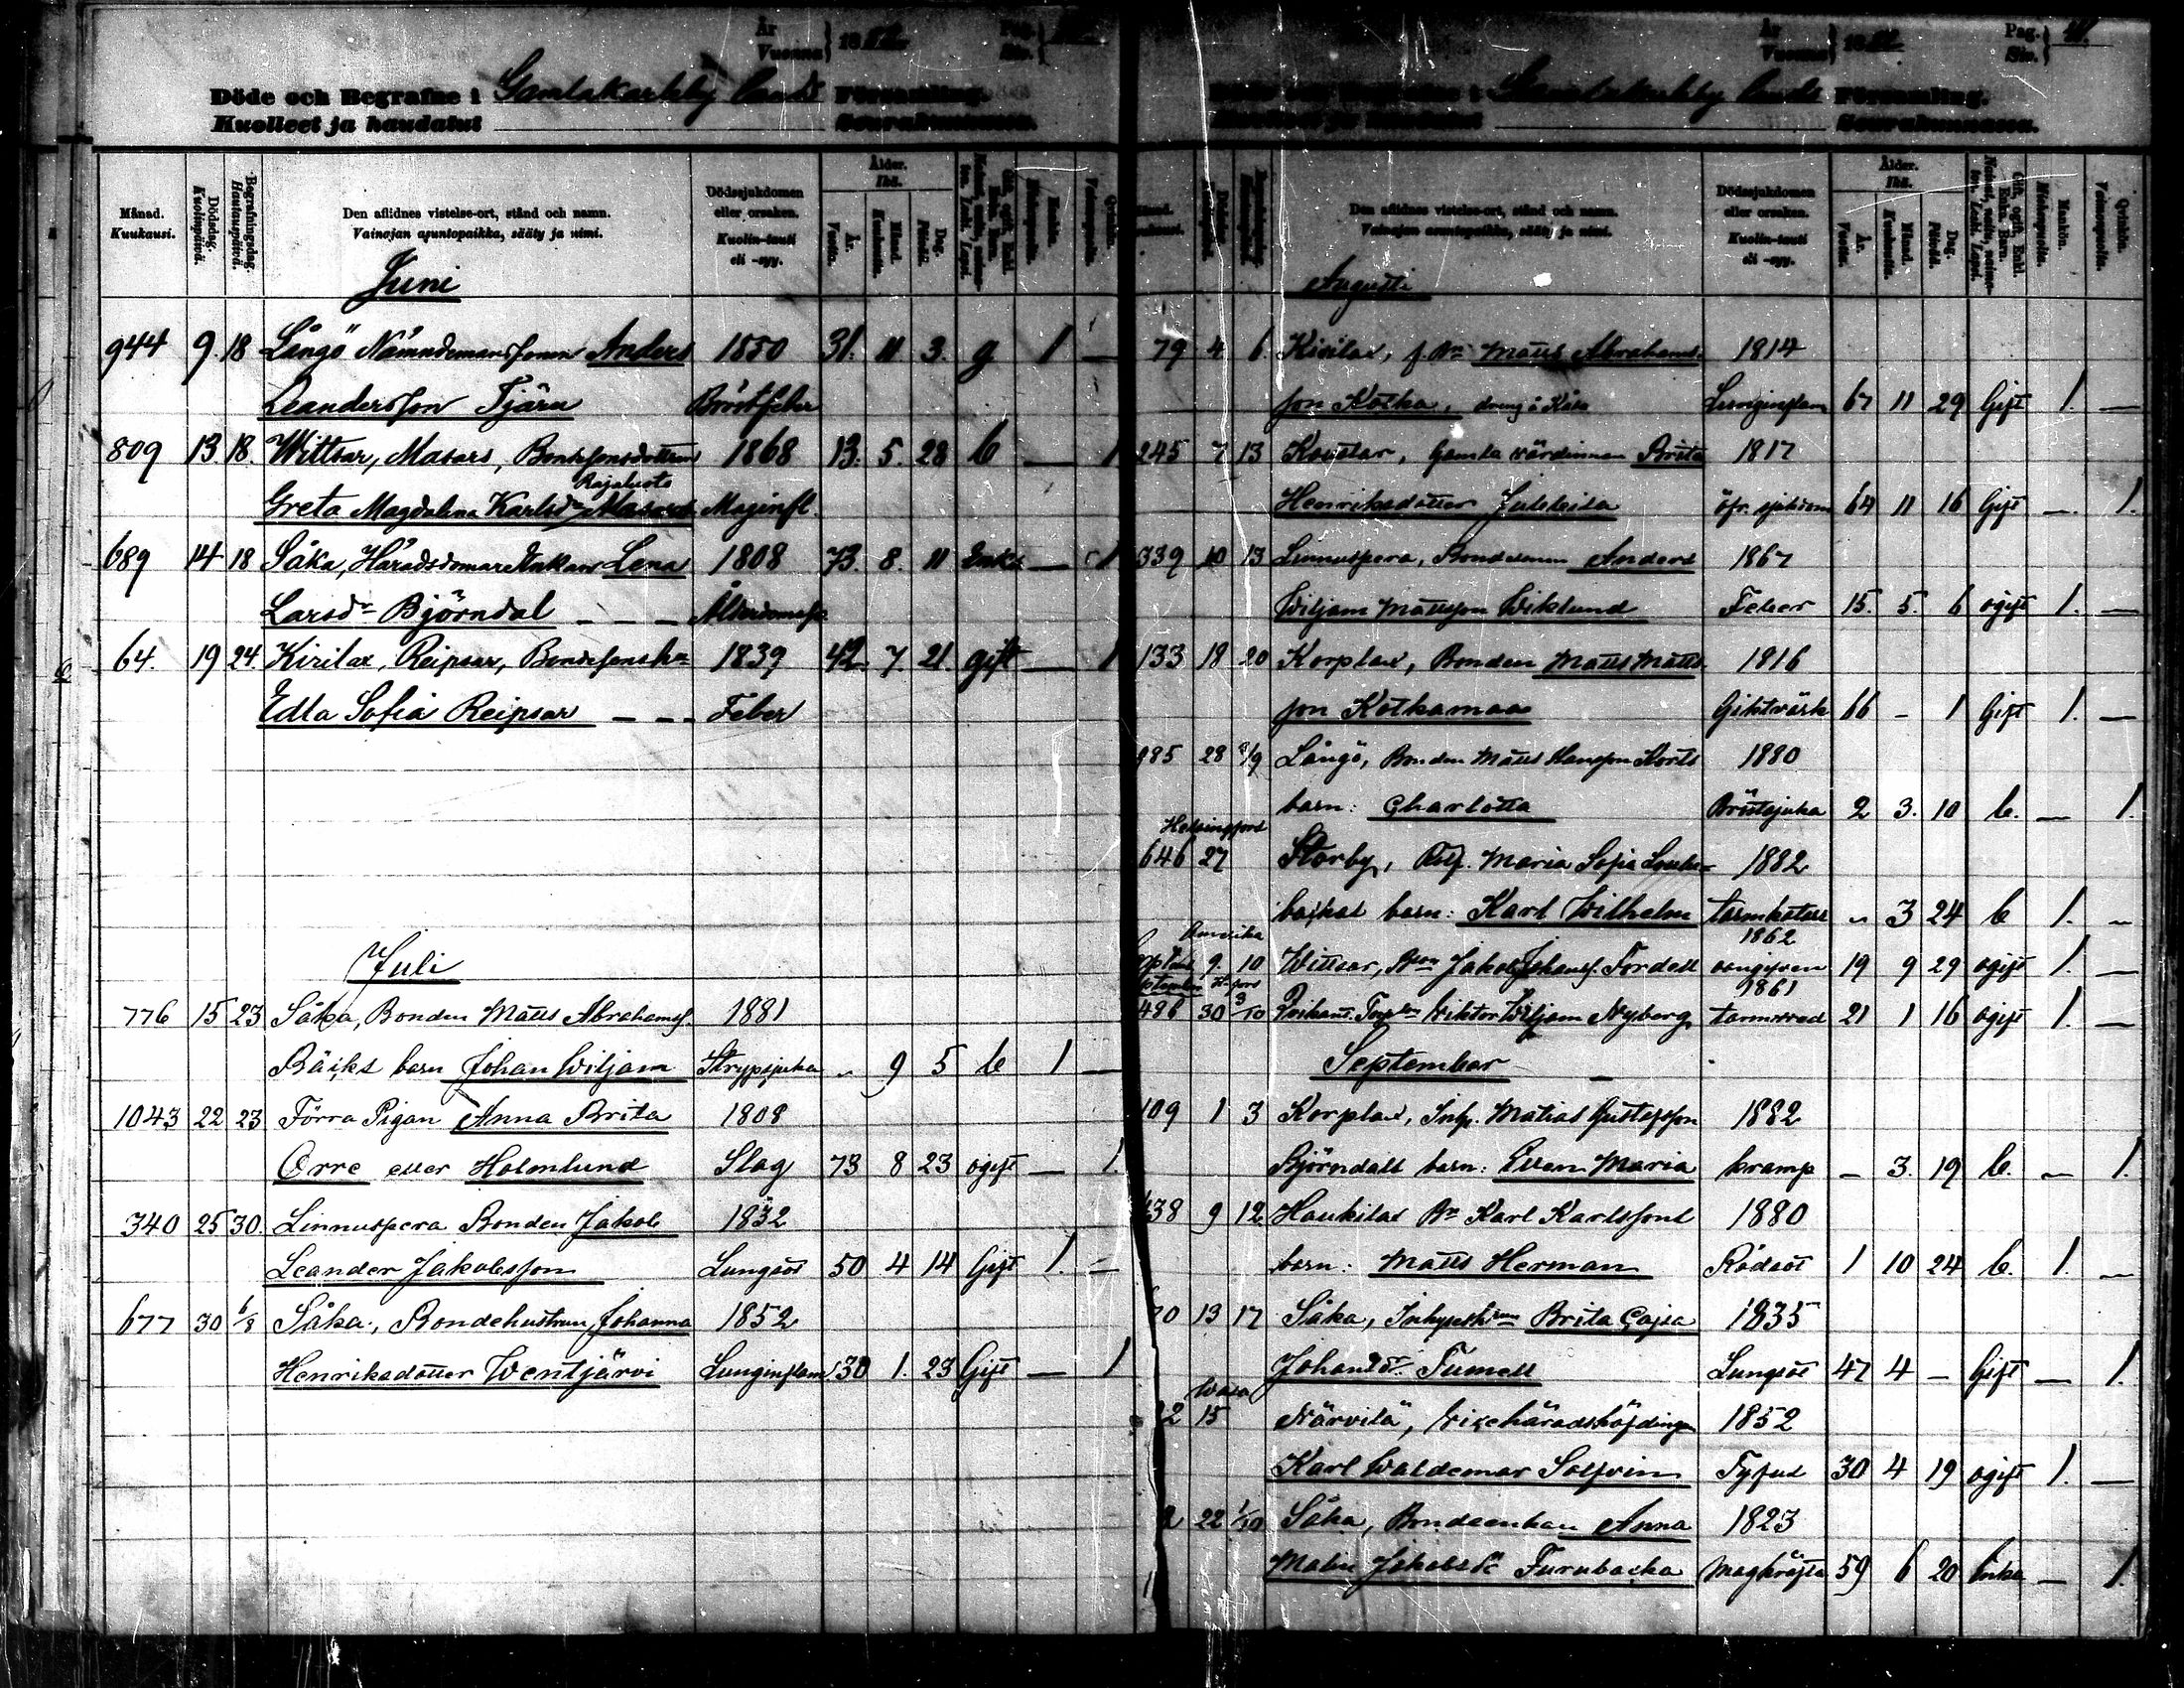 År
Vuonna } 1882
Döde och Begrafne i Gamlakarleby lands Församling.
Kuolleet ja haudatut Seurakunnassa.
Månad.
Kuukausi.
Dödsdag.
Kuolinpäivä.
Begrafningsdag.
Hautauspäivä.
Den aflidnes vistelse-ort, stånd och namn.
Vainajan asuntopaikka, sääty ja nimi.
Dödssjukdomen
eller orsaken.
Kuolin-tauti
eli -syy.
Ålder.
Ikä.
År.
Vuotta.
Månad.
Kuukautta.
Dag.
Päivää.
Mankön.
Miehenpuolta.
Qvinkön.
Vaimonpuolta.
Juni
944 9. 18 Långö Nämndemanssonen Anders 1850 31. 11 3. g 1 —
Leandersson Tjäru Bröstfeber
809 13. 18. Wittsar, Masars, Bondesonsdottren 1868 13. 5. 28 b — 1
Rajalusto
Greta Magdalena Karlsdr Masars Maginfl.
689 14 18 Såka, Häradsdomare Enkan Lena 1808 73. 8. 11 Enka — 1
Larsdr Björndal — — —
64. 19 24. Kirilax, Reipsar, 1839 42 7. 21. gift — 1
Edla Sofia Reipsar — — — Feber
Juli
776 15 23 Såka, Bonden Matts Abrahamss. 1881
Bäcks barn Johan Wiljam Strypsjuka „ 9 5 b 1 —
1043 22 23 Förra Pigan Anna Brita 1808
Orre eller Holmlund Slag 73 8 23 ogift — 1.
340 25 30. Linnuspera Bonden Jakob 1832
Leander Jakobsson Lungsot 50 4 14 Gift 1. —
677 30 6/8 Såka, Bondehustrun Johanna 1852
Henriksdotter Wentjärvi Lunginflam 30 1. 23 Gift — 1
År
Vuonna } 1882
Pag.
Siv. } 41.
Gamlakarleby lands Församling.
Seurakunnassa.
Den aflidnes vistelse-ort, stånd och namn.
Vainajan asuntopaikka, sääty ja nimi.
Dödssjukdomen
eller orsaken.
Kuolin-tauti
eli -syy.
Ålder.
Ikä.
År.
Vuotta.
Månad.
Kuukautta.
Dag.
Päivää.
Mankön.
Miehenpuolta.
Qvinkön.
Vaimonpuolta.
Augusti
79 4 6. Kirilax, f. Bn Matts Abrahams- 1814
son Kotka, Lunginflam 67 11 29 Gift 1. —
245 7 13 Koustar, Gamla värdinnan Brita 1817
Henriksdotter Juteleita öfr. sjukdom 64 11 16 Gift — 1.
339 10 13 Linnuspera, Bondesonen Anders 1867
Wiljam Mattsson Wiklund Feber 15. 5. 6 ogift 1. —
133 18 20 Korplax, Bonden Matts Matts- 1816
son Kotkamaa Giktvärk 66 — 1 Gift 1. —
985 28 3/9 Långö, Bonden Matts Hansson Storts 1880
barn: Charlotta Bröstsjuka 2 3. 10 b. — 1.
Helsingfors
646 27 Storby, Maria Sofia 1882
barn: Karl Wilhelm tarmkatarr „ 3 24 b 1. —
Amerika 1862
9 10 Wittsar, Bson Jakob Johanss. Fordell oangifven 19 9 29 ogift 1. —
H:fors 1861
486 30 3/10 Wiktor Wiljam Nyberg tarmvred 21 1 16 ogift 1. —
September
109 1 3 Korplax, Inh. Matias Gustafsson 1882
Björndals barn: Ellen Maria kramp — 3. 19 b. — 1.
638 9 12 Haukilax Bn Karl Karlssons 1880
barn: Matts Herman Rödsot 1 10 24 b. 1. —
70 13 17 Såka, Brita Cajsa 1835
Johansdr. Tumell Lungsot 47 4 — Gift — 1.
Wasa
2 15 Närvilä, Vicehäradshöfdingen 1852
Karl Waldemar Solfvin Tyfus 30 4 19 ogift 1. —
2 22 1/10 Såka, Bondeenkan Anna 1823
Malin Jakobsdr Furubacka Magkräfta 59 6 20 Enka — 1.